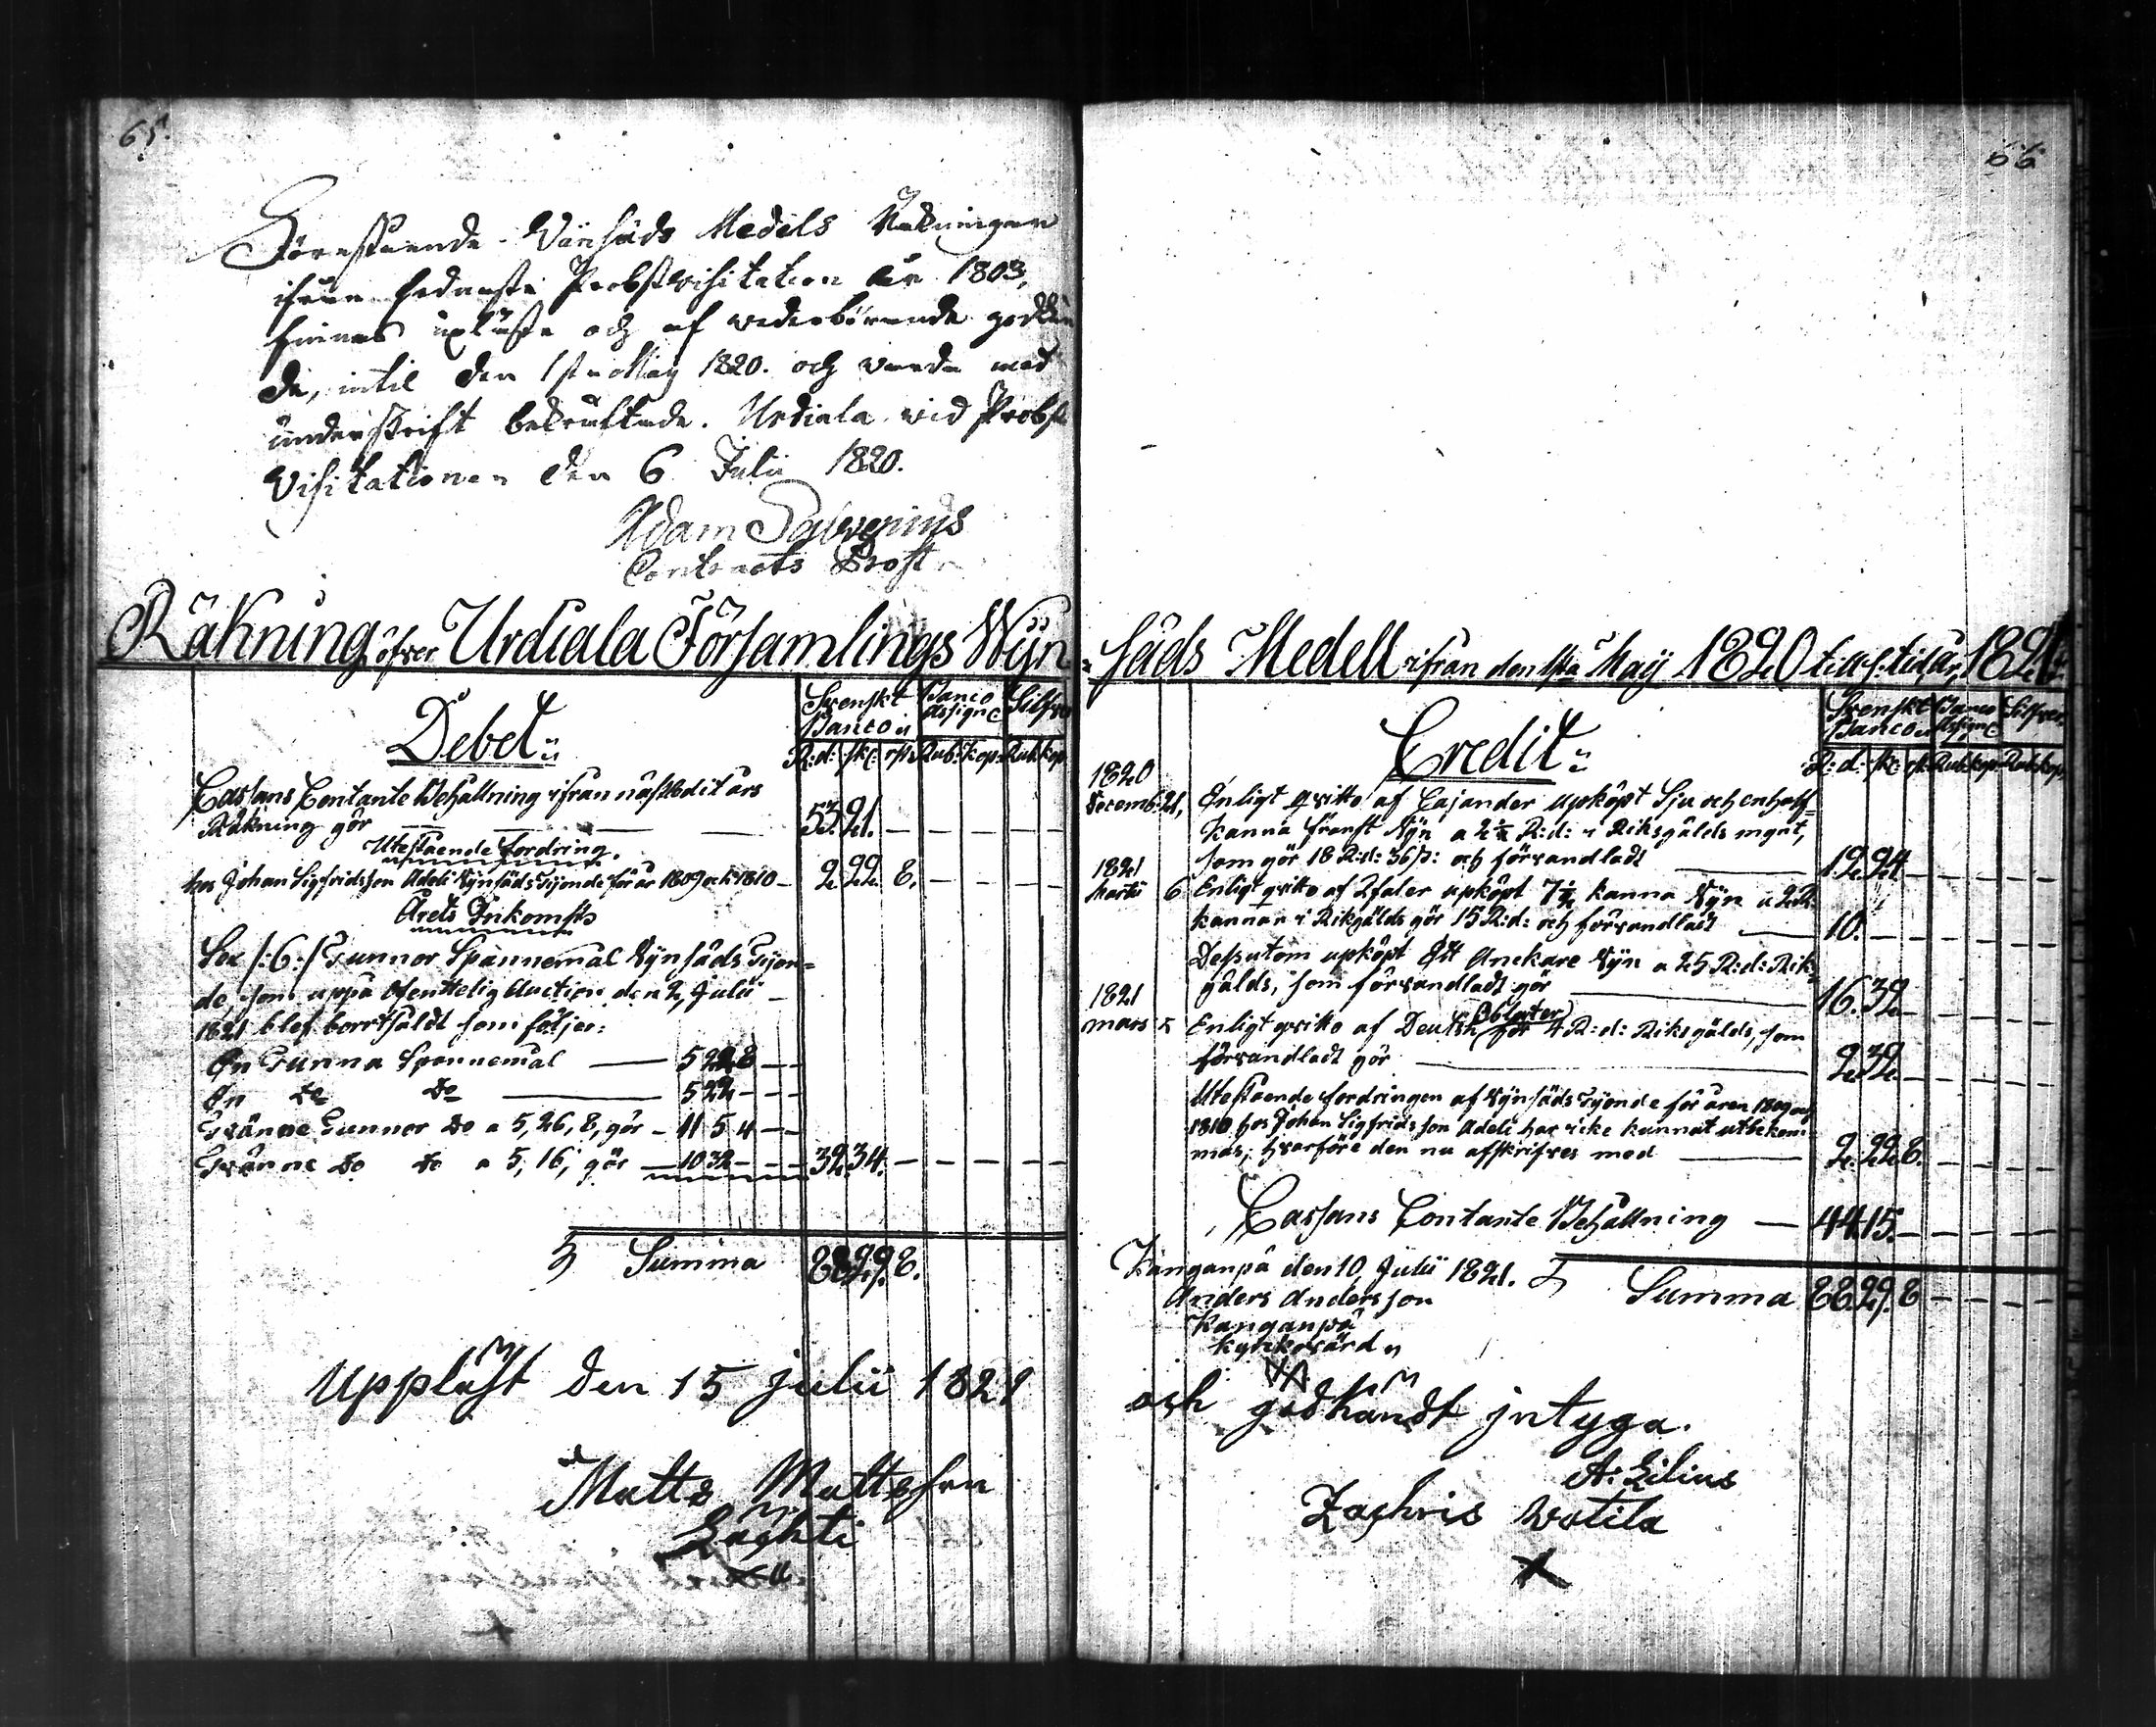 65.
Förestående Vinsäds Medels Räkningar
ifrån sednaste Probstvisitation år 1803,
finnas upläste och af wederbörande godkän
de, intil den 1sta Maij 1820. och varda med
underskrift bekräftade. Urdiala vid Probst
Visitationen den 6 Julii 1820.
Adam
Contracts Prost
Räkning öfver Urdiala Församlings Wijn
Debet:
Svenskt Banco
Banco Assigne
Silfver
R:d: sk: rst Rub: kop: Rub: kop
Cassans Contante Behållning ifrån näst ars
Räkning gör — — — 53. 21. — — — — —
Utestående fordring.
hos Johan Sigfridsson Adeli Vynsäds Tijonde för år 1809 och 1810 — 2. 22. 8. — — — —
Årets Inkomst
Sex /:6:/ Tunnor Spannemål Vynsäds Tijon=
de, som uppå Offentelig Auction den 2 Julii
1821 blef borrtsåldt som följer:
En Tunna Spannemål — 5 22 8 — —
En do do — 5 22 — — —
Tvänne Tunnor do a 5, 26, 8, gör — 11 5 4 — —
Tvänne do do a 5, 16, gör — 10 32 — — — 32. 34. — — — — —
Summa 88. 29. 8.
Upläst den 15 julii 1821
Matts Mattsson
Lachti
66
säds Medell ifrån den 1sta Maij 1820 till s. tid år 1821
Credit:
Svenskt Banco
Banco Assigne
Silfver
R:d: sk: rst Rub: kop: Rub: kop
1820
Decemb: 21, Enligt qvitto af Cajander upköpt Sju och en half
kanna fransk Vyn a 2½ R:d: i Riksgälds mynt,
som gör 18 R:d: 36 s: och förvandladt — 12. 24 — — — — —
1821
Martii 6 Enligt qvitto af upköpt 7½ kanna Vyn a 2 R:
kannan i Rikgälds gör 15 R:d: och förvandladt — 10. — — — — — —
Dessutom upköpt Ett Anckare Vyn a 25 R:d: Rik=
gälds, som förvandladt gör — 16. 32 — — — — —
1821
mars Enligt qvitto af Deutsch Oblater för 4 R:d: Riksgälds, som
förvandladt gör — 2. 32. — — — — —
Utestående fordringen af Vynsäds Tijonde för åren 1809 och
1810 hos Johan Sigfridsson Adeli har icke kunnat utbekom=
mas, hvarföre den nu afskrifves med — 2. 22. 8. — — — —
Cassans Contante Behållning — 44. 15. — — — — —
Kanganpä den 10 Julii 1821.
Summa 88. 29. 8 — — — —
Anders Andersson
Kanganpä
kyrkovärd
och godkändt intyga.
A: Lilius
Zachris Wotila